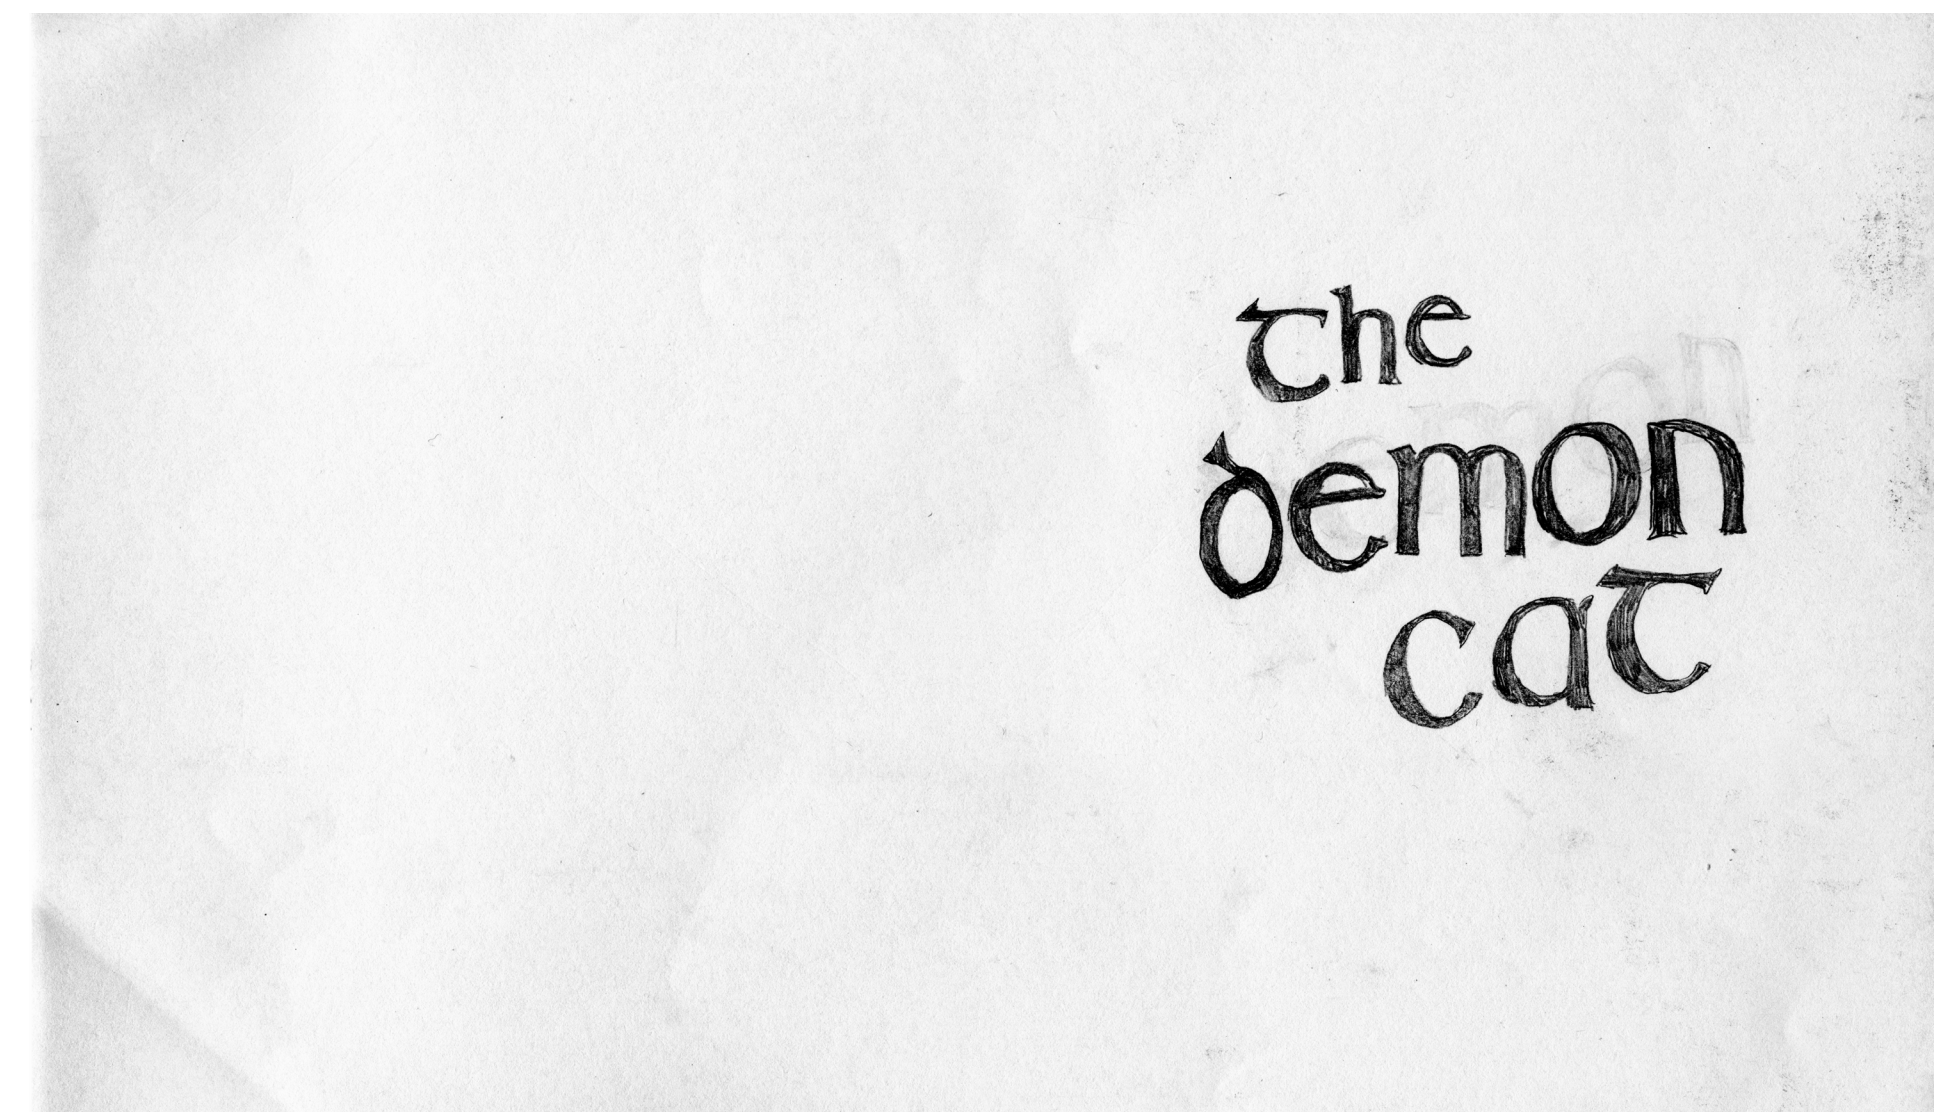 the
demon
cat